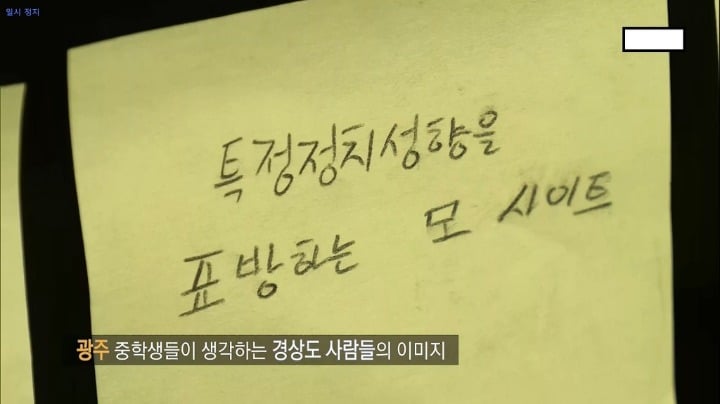 일시 정지
특정정치성향을
표방하는 모 사이트
광주 중학생들이 생각하는 경상도 사람들의 이미지